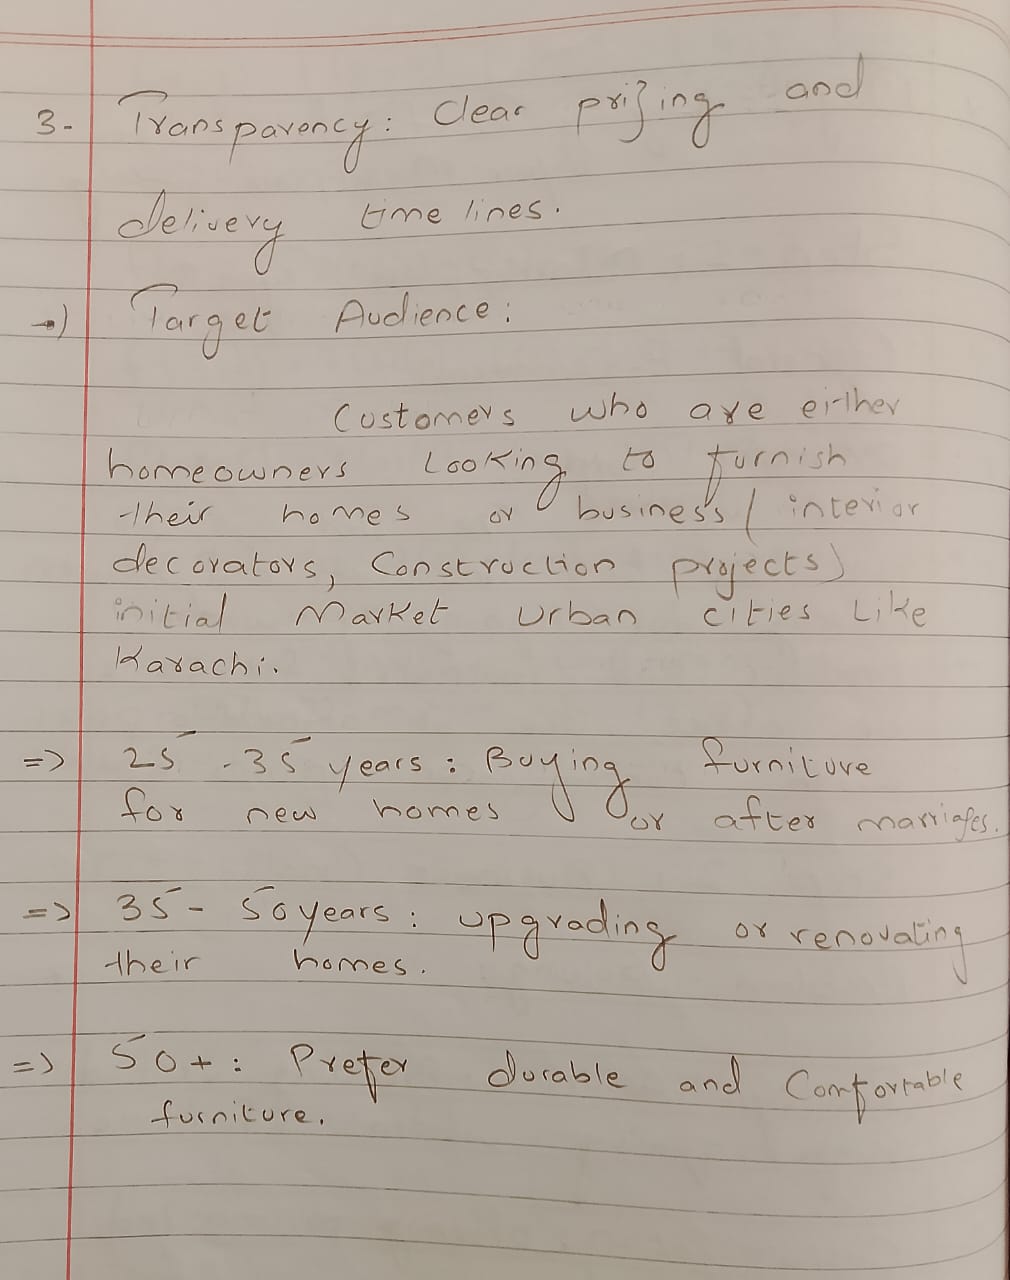 3- Transparency: Clear prizing and
delivery time lines.
→) Target Audience:
Customers who are either
homeowners Looking to furnish
their homes or business/interior
decorators, Construction projects)
initial Market Urban cities Like
Karachi.
=> 25-35 years: Buying furniture
for new homes or after marriages.
=> 35-50 years: upgrading or renovating
their homes.
=> 50+: Prefer durable and Comfortable
furniture.